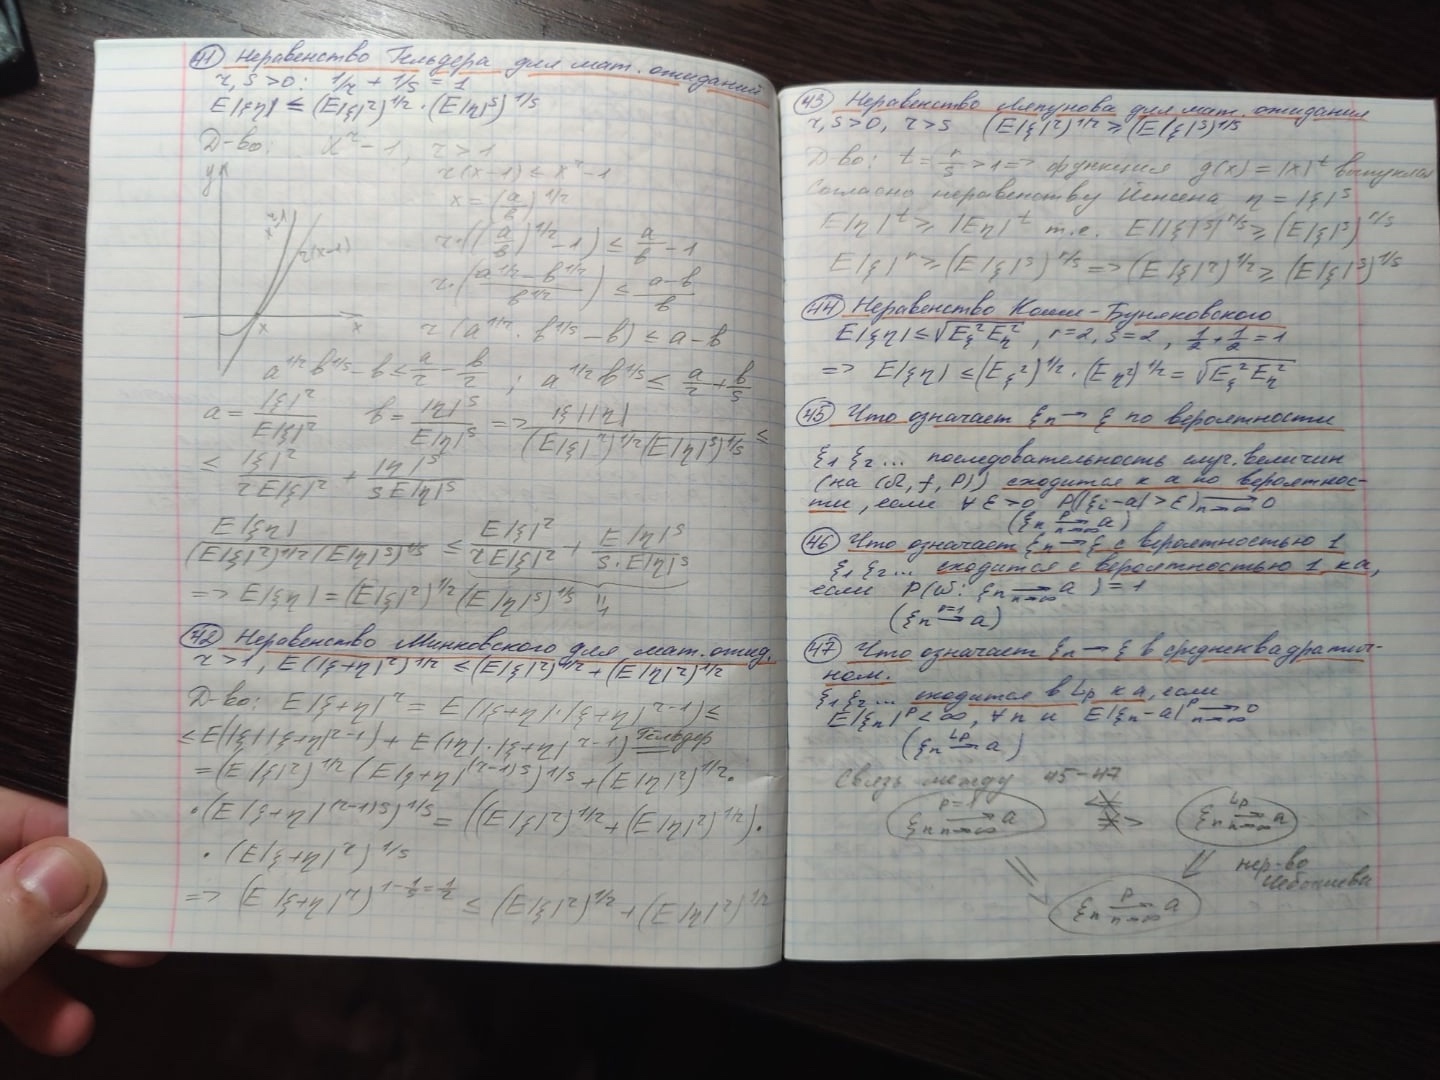 41 Неравенство Гельдера для мат. ожиданий
r, s >0: 1/r + 1/s = 1
E|ξη| ≤ (E|ξ|^r)^1/r · (E|η|^s)^1/s
Д-во: x^r - 1, r > 1
r(x-1) ≤ x^r - 1
x = (a/b)^1/r
y
x^r-1
r(x-1)
x
x
r·((a/b)^1/r - 1) ≤ a/b - 1
r·((a^1/r - b^1/r)/b^1/r) ≤ (a-b)/b
r (a^1/r · b^1/s - b) ≤ a - b
a^1/r b^1/s - b ≤ a/r - b/r ; a^1/r b^1/s ≤ a/r + b/s
a = |ξ|^r/E|ξ|^r b = |η|^s/E|η|^s => |ξ||η|/((E|ξ|^r)^1/r (E|η|^s)^1/s) ≤
≤ |ξ|^r/(rE|ξ|^r) + |η|^s/(sE|η|^s)
E|ξη|/((E|ξ|^r)^1/r (E|η|^s)^1/s) ≤ E|ξ|^r/(rE|ξ|^r) + E|η|^s/(s·E|η|^s)
=> E|ξη| = (E|ξ|^r)^1/r (E|η|^s)^1/s = 1
42 Неравенство Минковского для мат. ожид.
r >1, E(|ξ+η|^r)^1/r ≤ (E|ξ|^r)^1/r + (E|η|^r)^1/r
Д-во: E|ξ+η|^r = E(|ξ+η|·|ξ+η|^r-1) ≤
≤ E(|ξ||ξ+η|^r-1) + E(|η|·|ξ+η|^r-1) Гельдер =
= (E|ξ|^r)^1/r (E|ξ+η|^(r-1)s)^1/s + (E|η|^r)^1/r ·
· (E|ξ+η|^(r-1)s)^1/s = ((E|ξ|^r)^1/r + (E|η|^r)^1/r) ·
· (E|ξ+η|^r)^1/s
=> (E|ξ+η|^r)^1-1/s=1/r ≤ (E|ξ|^r)^1/r + (E|η|^r)^1/r
43 Неравенство Ляпунова для мат. ожидания
r, s >0, r > s (E|ξ|^r)^1/r ≥ (E|ξ|^s)^1/s
Д-во: t = r/s > 1 => функция g(x) = |x|^t выпуклая
Согласно неравенству Йенсена η = |ξ|^s
E|η|^t ≥ |Eη|^t т.е. E||ξ|^s|^r/s ≥ (E|ξ|^s)^r/s
E|ξ|^r ≥ (E|ξ|^s)^r/s => (E|ξ|^r)^1/r ≥ (E|ξ|^s)^1/s
44 Неравенство Коши-Буняковского
E|ξη| ≤ √(Eξ²Eη²), r=2, s=2, 1/2 + 1/2 = 1
=> E|ξη| ≤ (Eξ²)^1/2 · (Eη²)^1/2 = √(Eξ²Eη²)
45 Что означает ξn → ξ по вероятности
ξ1 ξ2 ... последовательность случ. величин
(на (Ω, f, P)) сходится к a по вероятнос-
ти, если ∀ ε >0 P(|ξi - a| > ε) →n→∞ 0
(ξn →P n→∞ a)
46 Что означает ξn → ξ с вероятностью 1
ξ1 ξ2 ... сходится с вероятностью 1 к a,
если P(ω: ξn →n→∞ a) = 1
(ξn →P=1 a)
47 Что означает ξn → ξ в среднеквадратич-
ном.
ξ1 ξ2 ... сходится в Lp к a, если
E|ξn|^p < ∞, ∀ n и E|ξn - a|^p →n→∞ 0
(ξn →Lp a)
Связь между 45-47
ξn →p=1 n→∞ a
ξn →Lp n→∞ a
нер-во
Чебышева
ξn →P n→∞ a